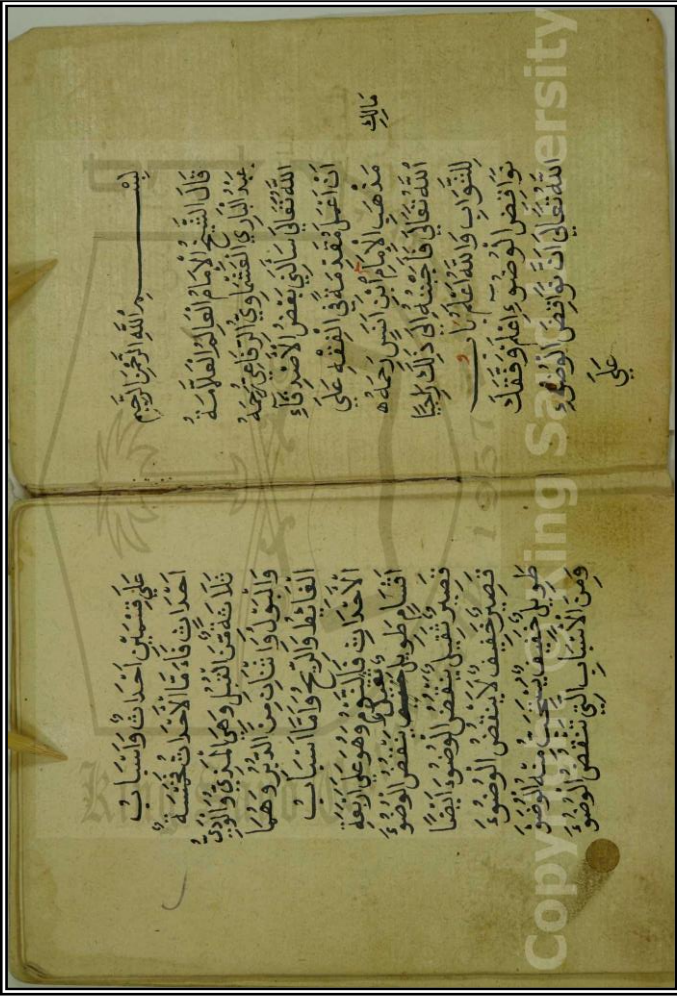 بِسْمِ اللَّهِ الرَّحْمَنِ الرَّحِيمِ
قَالَ الشَّيْخُ الْإِمَامُ الْعَالِمُ الْعَلَّامَةُ
عَبْدُ الْبَارِي الْعَشْمَاوِيُّ الرِّفَاعِيُّ رَحِمَهُ
اللَّهُ تَعَالَى سَأَلَنِي بَعْضُ الْأَصْدِقَاءِ
أَنْ أَعْمَلَ مُقَدِّمَةً فِي الْفِقْهِ عَلَى
مَذْهَبِ الْإِمَامِ ابْنِ أَنَسٍ رَحِمَهُ
مَالِكِ
اللَّهُ تَعَالَى فَأَجَبْتُهُ إِلَى ذَلِكَ رَاجِيًا
لِلثَّوَابِ وَاللَّهُ أَعْلَمُ بَابُ
نَوَاقِضِ الْوُضُوءِ اعْلَمْ وَفَّقَكَ
اللَّهُ تَعَالَى أَنَّ نَوَاقِضَ الْوُضُوءِ
عَلَى
عَلَى قِسْمَيْنِ أَحْدَاثٌ وَأَسْبَابُ
أَحْدَاثٍ فَأَمَّا الْأَحْدَاثُ فَخَمْسَةٌ
ثَلَاثَةٌ مِنَ الْقُبُلِ وَهِيَ الْمَذْيُ وَالْوَدْيُ
وَالْبَوْلُ وَاثْنَانِ مِنَ الدُّبُرِ وَهُمَا
الْغَائِطُ وَالرِّيحُ وَأَمَّا أَسْبَابُ
الْأَحْدَاثِ فَالنَّوْمُ وَهُوَ عَلَى أَرْبَعَةِ
أَقْسَامٍ طَوِيلٌ ثَقِيلٌ يَنْقُضُ الْوُضُوءَ
قَصِيرٌ ثَقِيلٌ يَنْقُضُ الْوُضُوءَ أَيْضًا
قَصِيرٌ خَفِيفٌ لَا يَنْقُضُ الْوُضُوءَ
طَوِيلٌ خَفِيفٌ يُسْتَحَبُّ مِنْهُ الْوُضُوءُ
وَمِنَ الْأَسْبَابِ الَّتِي تَنْقُضُ الْوُضُوءَ